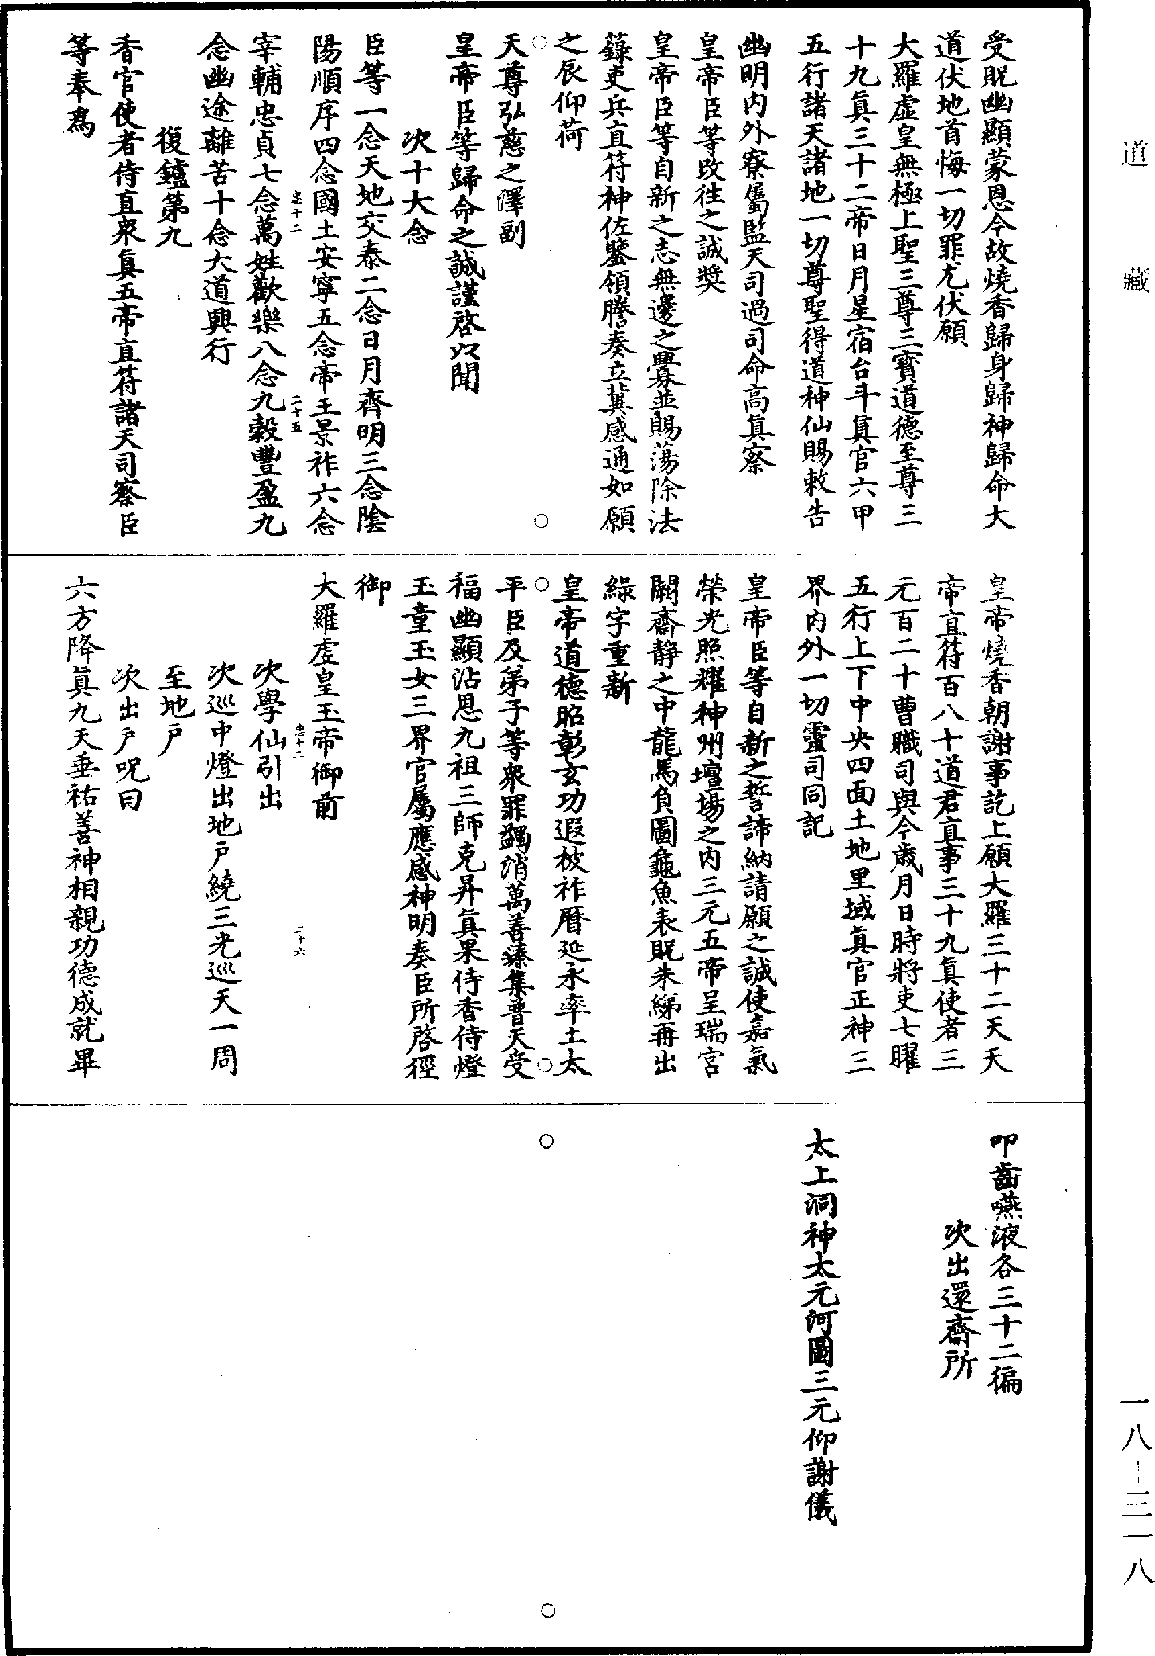 道藏
受貺幽顯蒙恩今故燒香歸身歸神歸命大
道伏地首悔一切罪尤伏願
大羅虛皇無極上聖三尊三寶道德至尊三
十九眞三十二帝日月星宿台斗眞官六甲
五行諸天諸地一切尊聖得道神仙賜敕告
幽明內外寮屬監天司過司命高眞察
皇帝臣等改往之誠獎
皇帝臣等自新之志無邊之釁並賜蕩除法
籙吏兵直符神佐鑒領騰奏立冀感通如願
之辰仰荷
天尊弘慈之澤副
皇帝臣等歸命之誠謹啓以聞
次十大念
臣等一念天地交泰二念日月齊明三念陰
陽順序四念國土安寧五念帝王景祚六念
忠十二
二十五
宰輔忠貞七念萬姓歡樂八念九穀豐盈九
念幽途離苦十念大道興行
復鑪第九
香官使者侍直衆眞五帝直符諸天司察臣
等奉爲
皇帝燒香朝謝事訖上願大羅三十二天天
帝直符百八十道君直事三十九眞使者三
元百二十曹職司與今歲月日時將吏七曜
五行上下中央四面土地里域眞官正神三
界內外一切靈司同記
皇帝臣等自新之誓諦納請願之誠使嘉氣
榮光照耀神州壇場之內三元五帝呈瑞宮
闕齋靜之中龍馬負圖龜魚表貺朱綈再出
綠字重新
皇帝道德昭彰玄功遐被祚曆延永率土太
平臣及弟子等衆罪蠲消萬善臻集普天受
福幽顯沾恩九祖三師克昇眞果侍香侍燈
玉童玉女三界官屬應感神明奏臣所啓徑
御
大羅虛皇玉帝御前
忠十二
二十六
次學仙引出
次巡中燈出地戶繞三光巡天一周
至地戶
次出戶呪曰
六方降眞九天垂祐善神相親功德成就畢
叩齒嚥液各三十二徧
次出還齋所
太上洞神太元河圖三元仰謝儀
一八—三一八